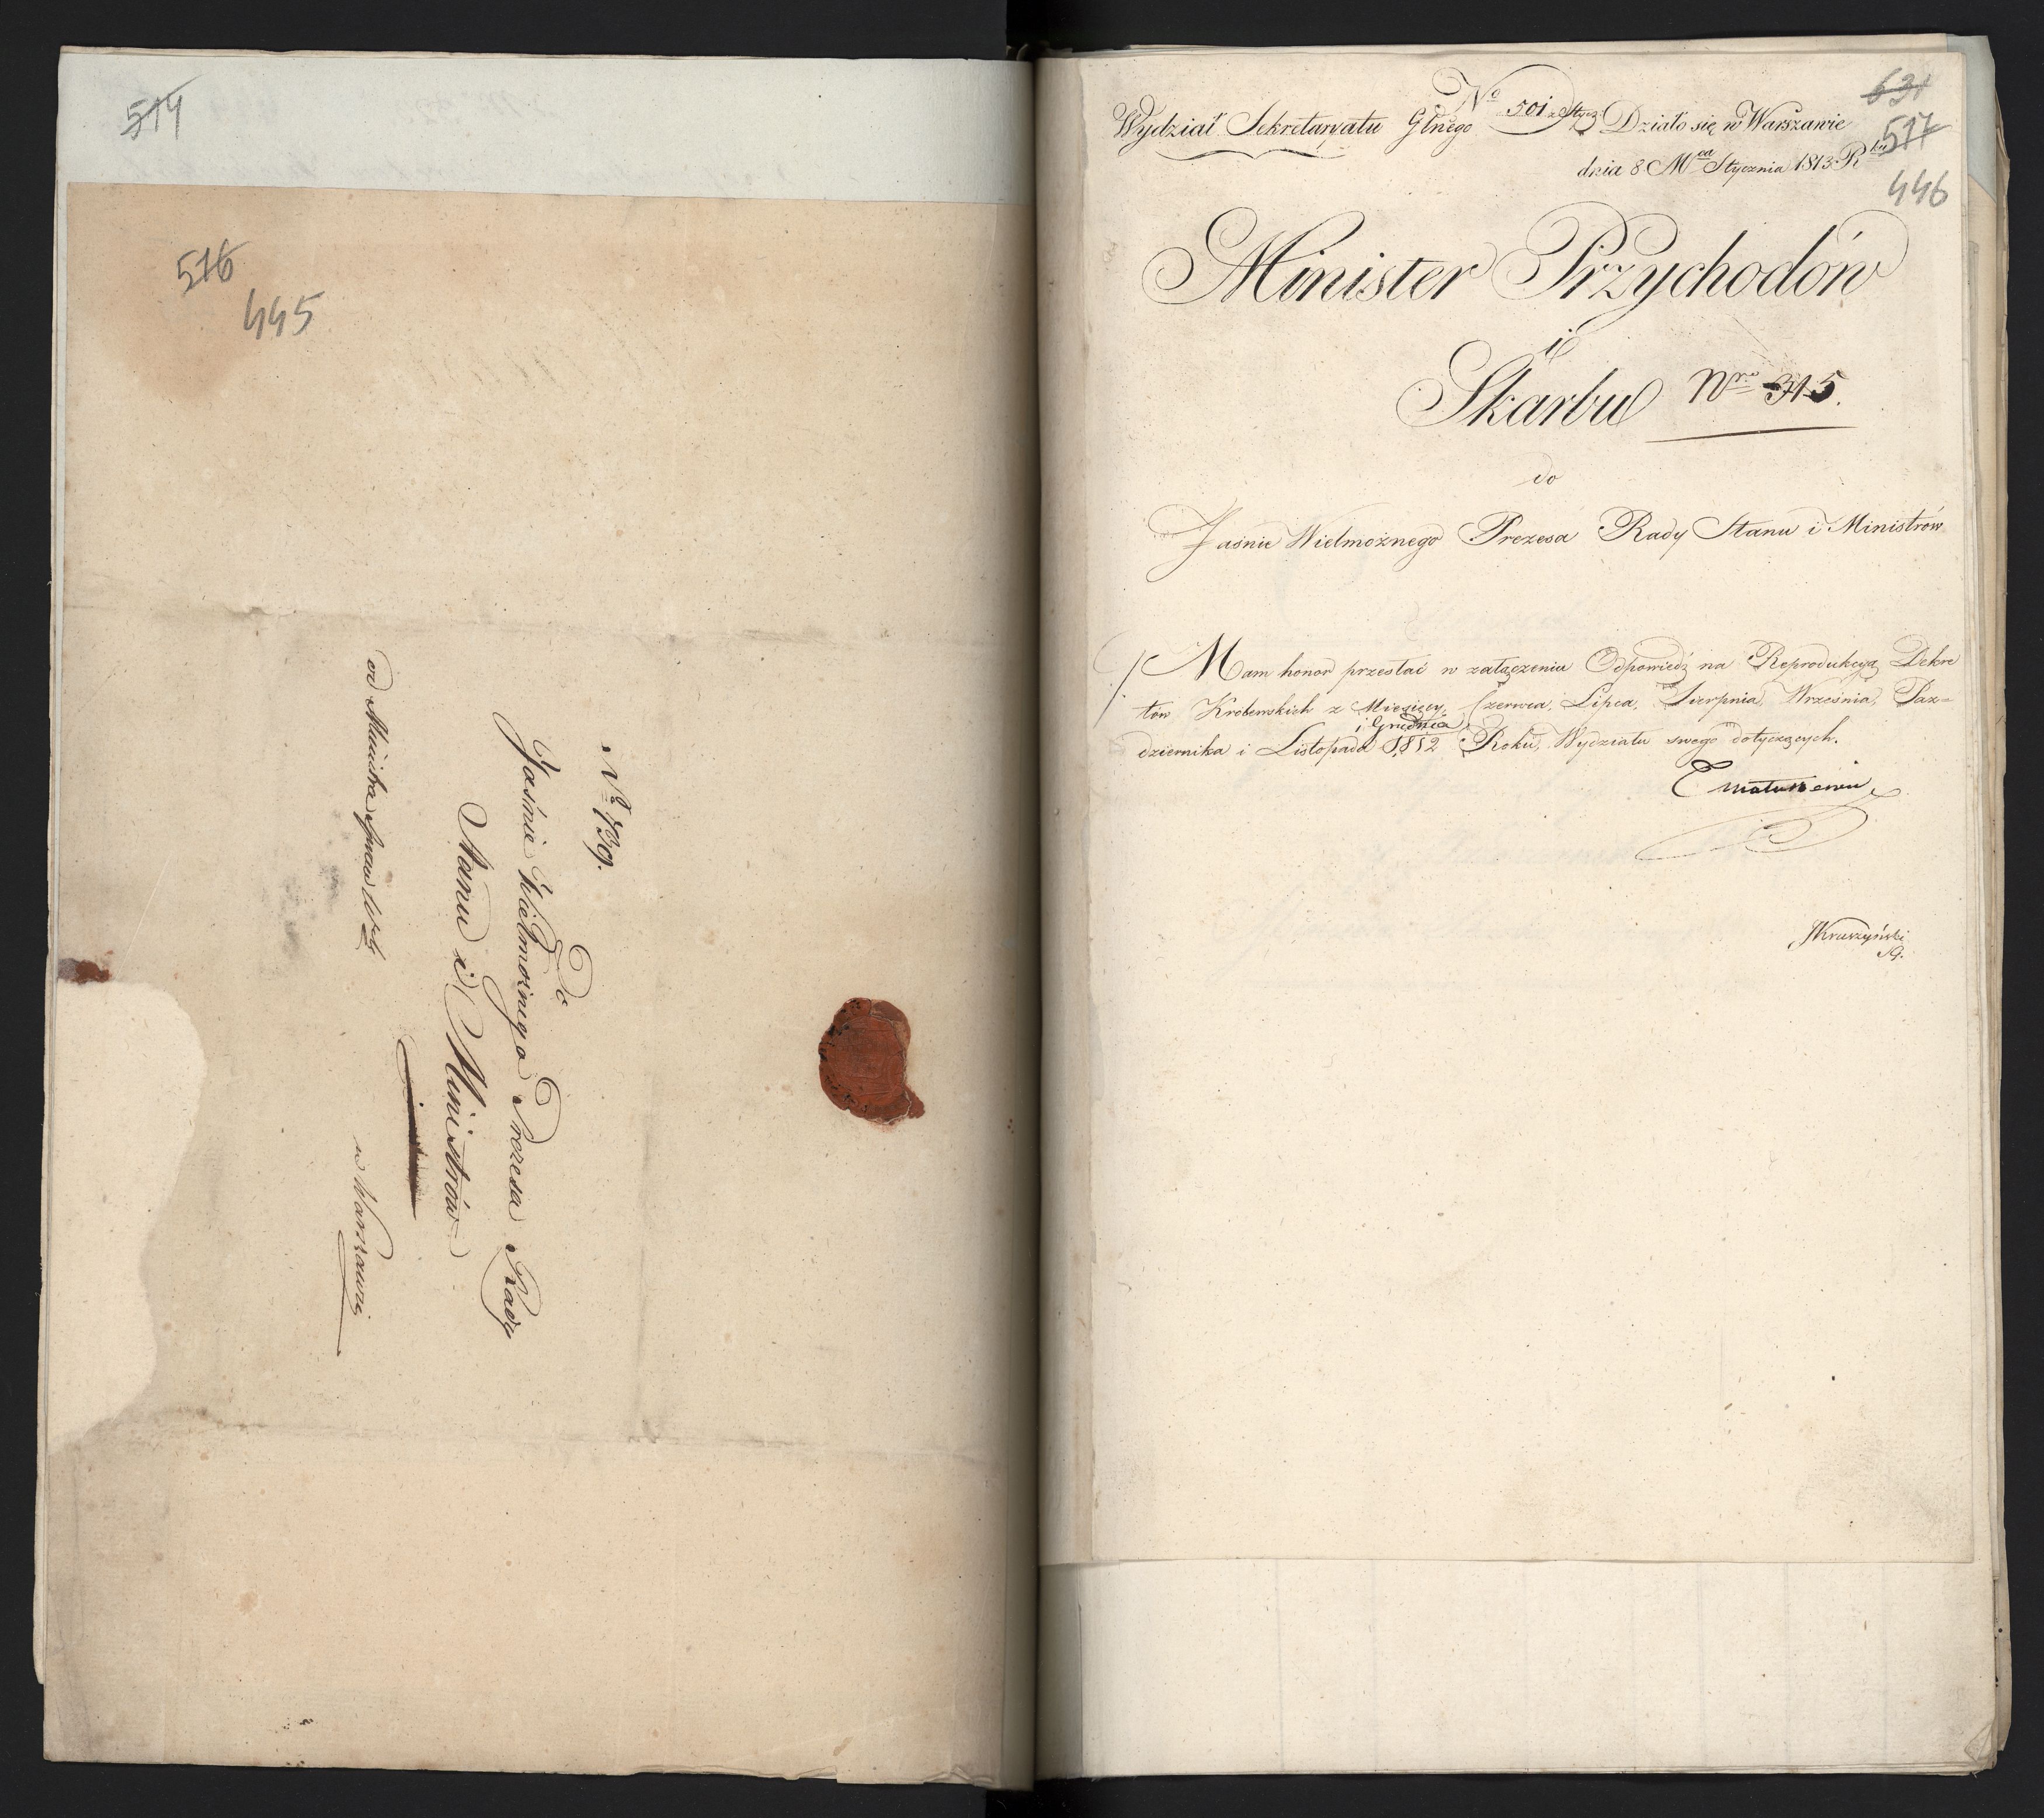 514
516
445
No 739.
Do
Jaśnie Wielmożnego Prezesa Rady
Stanu i Ministrów
od Ministra Spraw Wnych
w Warszawie
631
517
446
Wydział Sekretaryatu Glnego No 501 z Stycz: Działo się w Warszawie
dnia 8 Mca Stycznia 1813 Rku
Minister Przychodów
i
Skarbu Nro 315.
do
Jaśnie Wielmożnego Prezesa Rady Stanu i Ministrów
Mam honor przesłać w załączeniu Odpowiedź na Reprodukcyą Dekre
tów Królewskich z Miesięcy Czerwca, Lipca, Sierpnia, Września, Paź=
i Grudnia
dziernika i Listopada 1812 Roku, Wydziału swego dotyczących.
Matuszewic
JKruszyński
SG.